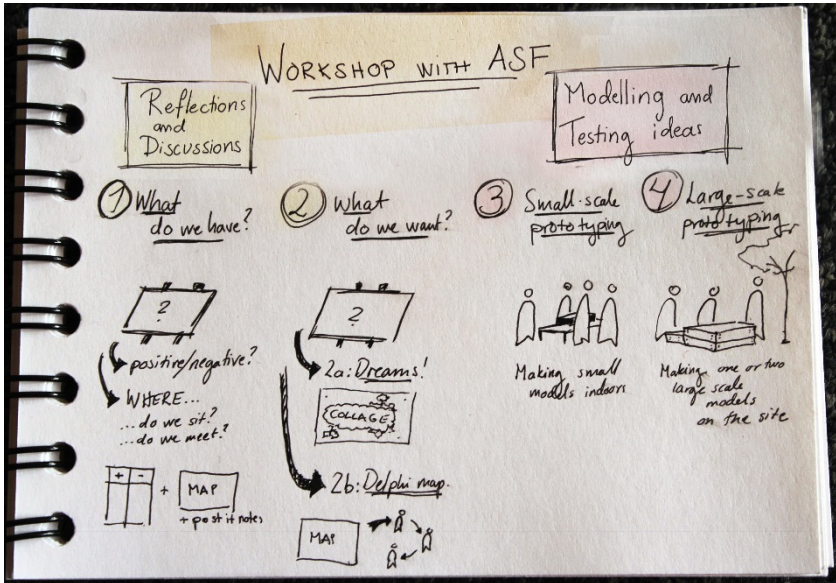 WORKSHOP WITH ASF
Reflections
and
Discussions
Modelling and
Testing ideas
1 What
do we have?
?
positive/negative?
WHERE...
...do we sit?
...do we meet?
+ -
+
MAP
+ post it notes
2 What
do we want?
?
2a: Dreams!
COLLAGE
2b: Delphi map.
MAP
3 Small-scale
prototyping
Making small
models indoors
4 Large-scale
prototyping
Making one or two
large scale
models
on the site